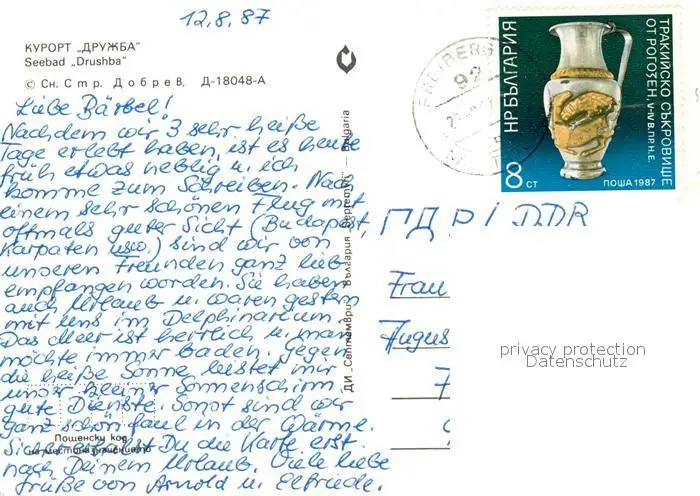 12.8.87
КУРОРТ „ДРУЖБА"
Seebad „Drushba"
© Сн. Стр. Добрев, Д-18048-А
Liebe Bärbel!
Nachdem wir 3 sehr heiße
Tage erlebt haben, ist es heute
früh etwas neblig u. ich
komme zum Schreiben. Nach
einem sehr schönen Flug mit
oftmals guter Sicht (Budapest,
Karpaten usw.) sind wir von
unseren Freunden ganz lieb
empfangen worden. Sie haben
auch Urlaub u. waren gestern
mit uns im Delphinarium.
Das Meer ist herrlich u. man
möchte immer baden. Gegen
die heiße Sonne leistet mir
unser kleiner Sonnenschirm
gute Dienste. Sonst sind wir
ganz schön faul in der Wärme.
Sicher erhältst Du die Karte erst
nach Deinem Urlaub. Viele liebe
Grüße von Arnold u. Elfriede.
Пощенски код
на местоназначението
ДИ „Септември" — България „Septemvri" — Bulgaria
FREIBERG
92
НР БЪЛГАРИЯ
ТРАКИЙСКО СЪКРОВИЩЕ
ОТ РОГОЗЕН, V-IV В.ПР.Н.Е.
8 СТ
ПОЩА 1987
ПДР / DDR
Frau
Augus
7
privacy protection
Datenschutz